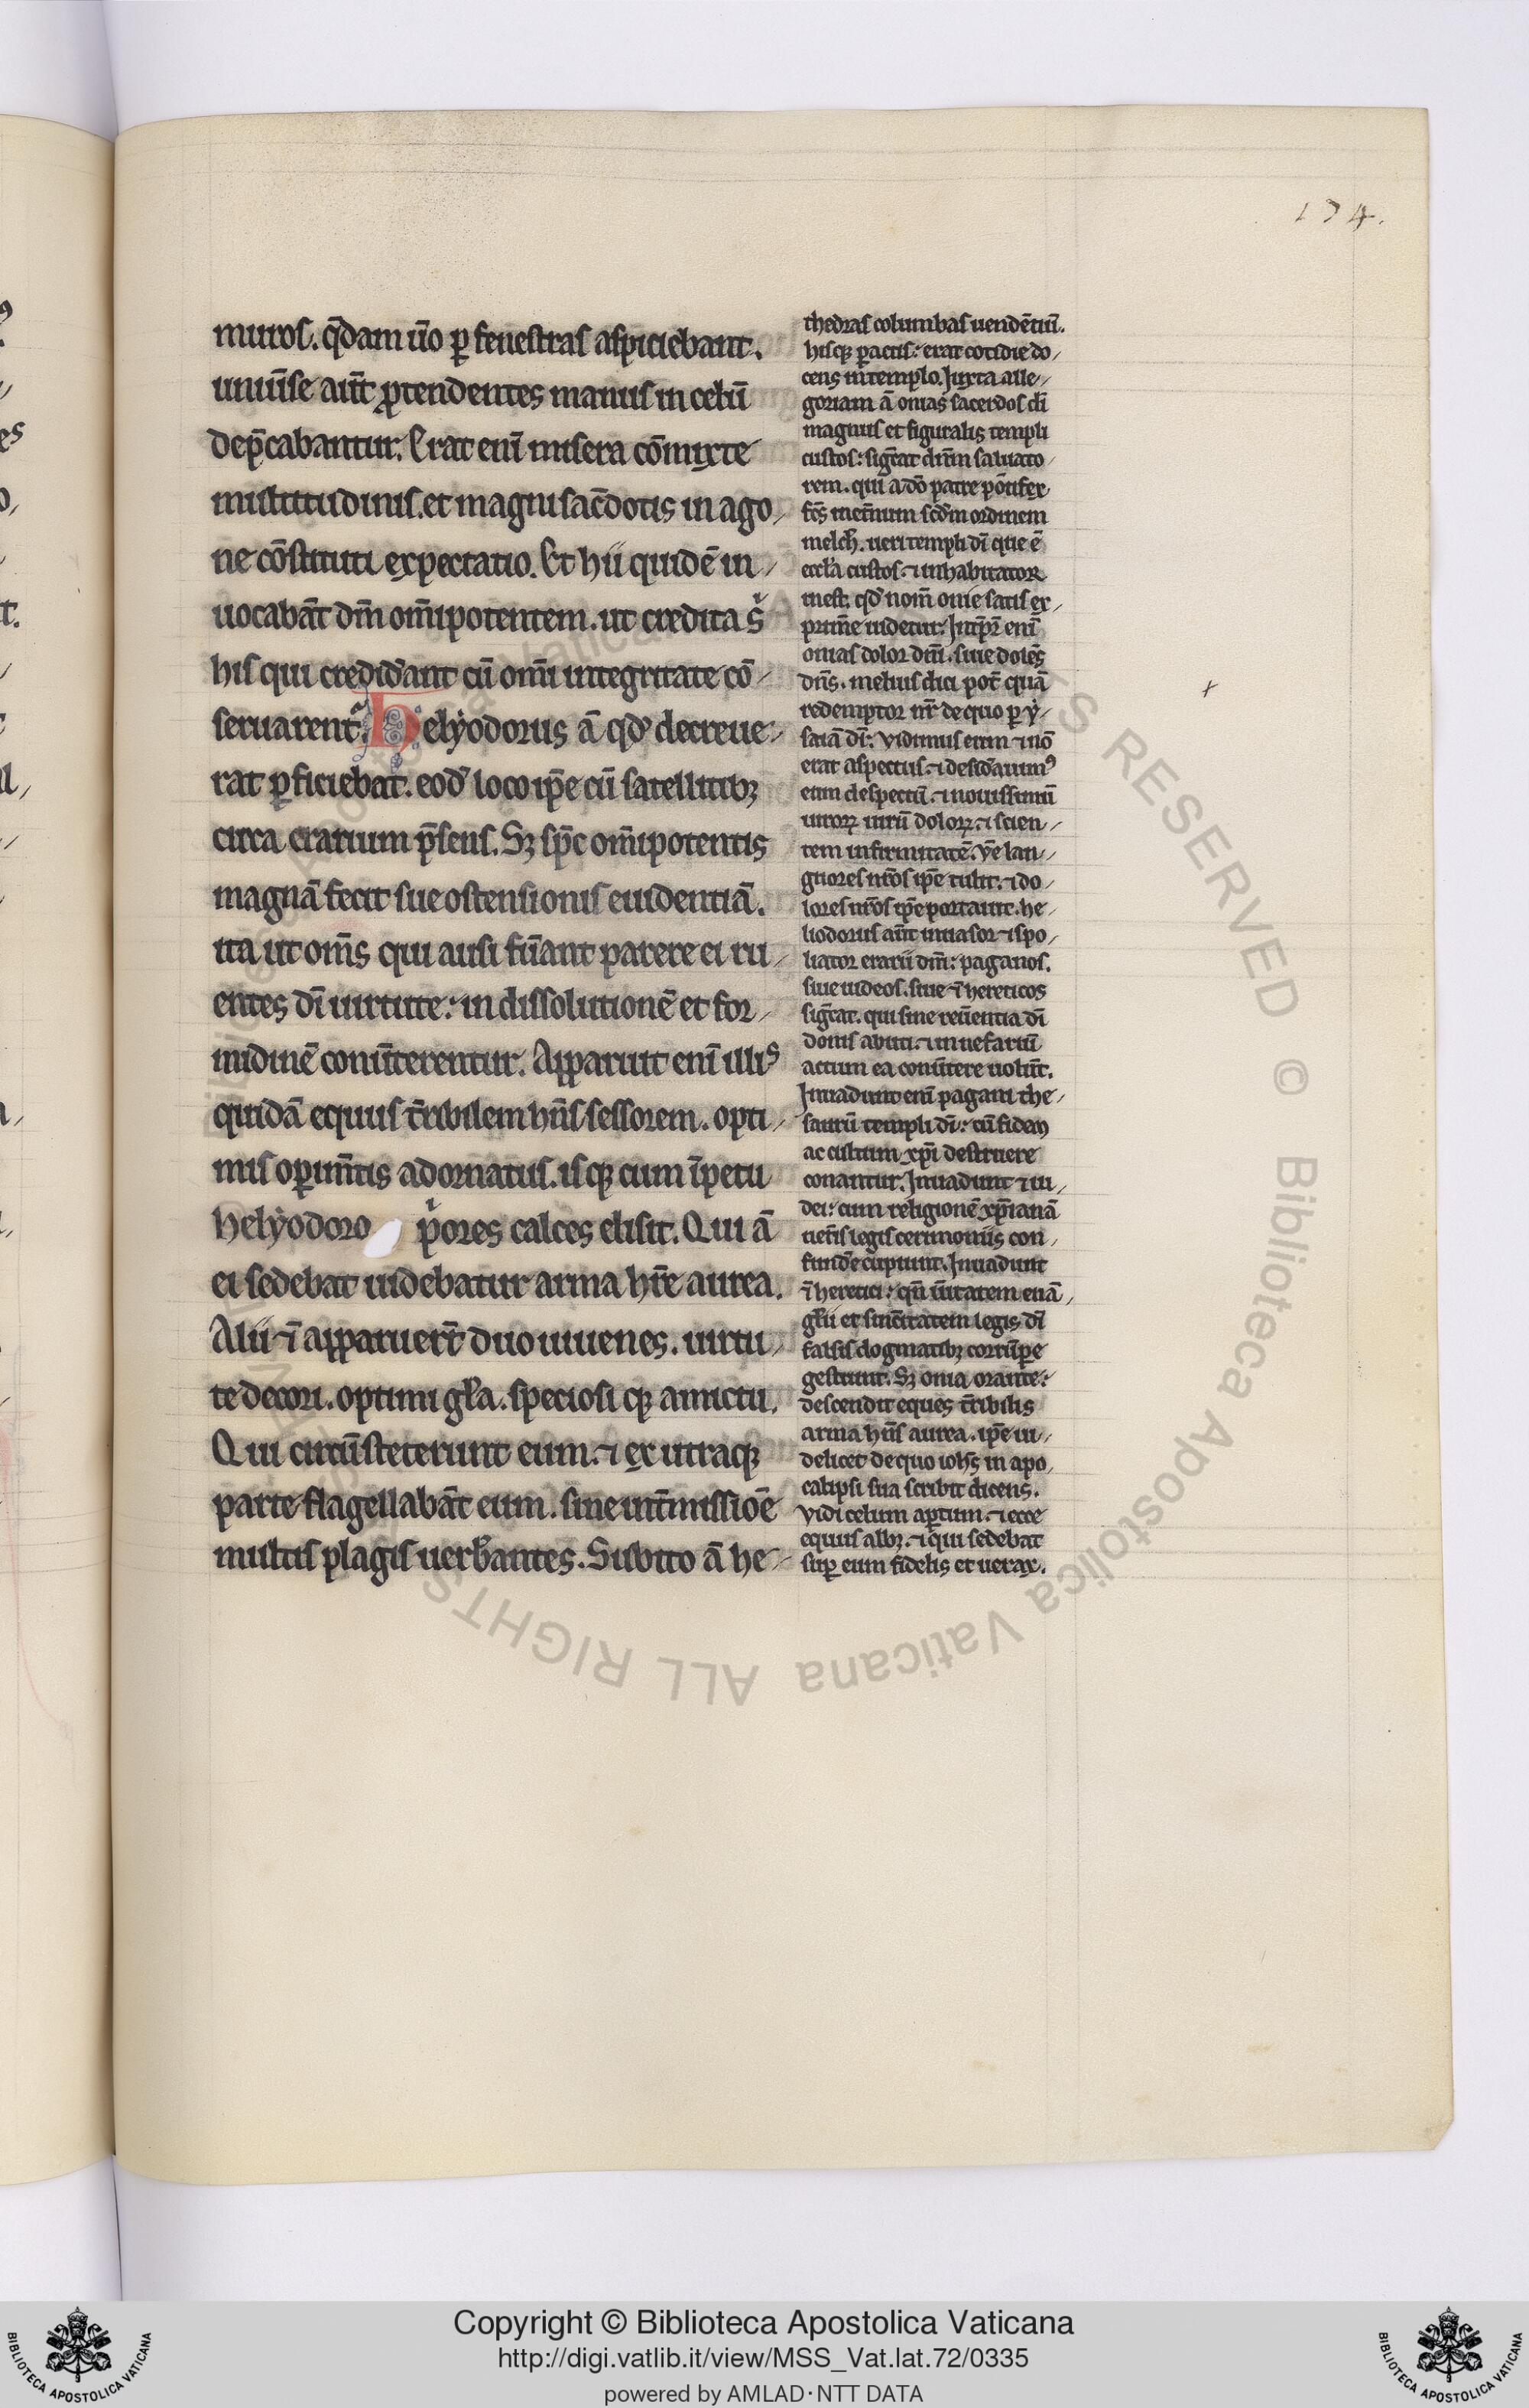 174.
muros. q̄dam ūo ꝑ fenestras aspiciebant.
uniūse aūt ꝓtendentes manus in celū
dep̄cabantur. Erat enī misera cōmixte
multitudinis. et magni sac̄dotis in ago
ne cōstituti expectatio. Et hii quidē in
uocabāt dm̄ om̄ipotentem. ut credita s̄
his qui credid̄ant cū om̄i integritate cō
seruarent᷑. Helyodorus ā qd̄ decreue
rat ꝑficiebat. eod̄ loco ip̄e cū satellitibꝫ
circa erarium p̄sens. Sꝫ sp̄c om̄ipotentis
magnā fecit sue ostensionis euidentiā.
ita ut om̄s qui ausi fūant parere ei ru
entes dī uirtute: in dissolutionē et for
midinē conūterentur. Apparuit enī illis
quidā equus t̄ribilem hn̄s sessorem. opti
mis oꝑim̄tis adornatus. isqꝫ cum īpetu
helyodoro pͥores calces elisit. Qui ā
ei sedebat uidebatur arma hr̄e aurea.
Alii ⁊̄ apparuer̄t duo iuuenes. uirtu
te decori. optimi gl̄a. speciosi qꝫ amictu.
Qui circūsteterunt eum. ⁊ ex utraqꝫ
parte flagellabāt eum. sine int̄missiōe
multis plagis uerb̄antes. Subito ā he
thedras columbas uendētiū.
hisqꝫ ꝑactis: erat cotidie do
cens in templo. Juxta alle
goriam ā onias sacerdos dī
magnus et figuralis templi
custos: sig̅cat dn̄m saluato
rem. qui a dō patre pōtifex
fc̄s inet̄num scd̄m ordinem
melch̄. ueri templi dī que ē
eccl̄a custos. ⁊ inhabitator
inest. qd̄ nom̄ onie satis ex
prim̄e uidetur. Int̄pr̄ enī
onias dolor dn̄i. siue dolēs
dn̄s. melius dici pot̄ quā
redemptor nr̄ de quo ꝑ y
saiā dr̄: Vidimus eum ⁊ nō
erat aspectus. ⁊ desid̄auimꝰ
eum despectū. ⁊ nouissimū
uiroꝝ uirū doloꝝ. ⁊ scien
tem infirmitatē. Ve᷑ lan
guores nr̄os ip̄e tulit. ⁊ do
lores nr̄os ip̄e portauit. he
liodorus aūt inuasor ⁊ spo
liator erarii dn̄i: paganos.
siue iudeos. siue ⁊̄ hereticos
sig̅cat. qui sine reūentia dī
donis abuti. ⁊ in nefariū
actum ea conūtere uolūt.
Inuadunt enī pagani the
saurū templi dī: cū fidem
ac cultum xp̄i destruere
conantur. Inuadunt ⁊ iu
dei: cum religionē xp̄ianā
uet̄is legis cerimoniis con
fund̄e cupiunt. Inuadunt
⁊̄ heretici: qn̄ ūitatem euā
glii et sinc̄itatem legis dī
falsis dogmatibꝫ corrūpe
gestiunt. Sꝫ onia orante:
descendit eques t̄ribilis
arma hn̄s aurea. ip̄e ui
delicet de quo ioh̄s in apo
calipsi sua scribit dicens.
Vidi celum aꝑtum. ⁊ ecce
equus albꝫ. ⁊ qui sedebat
suꝑ eum fidelis et uerax.
Copyright © Biblioteca Apostolica Vaticana
http://digi.vatlib.it/view/MSS_Vat.lat.72/0335
powered by AMLAD·NTT DATA
BIBLIOTECA APOSTOLICA VATICANA
BIBLIOTECA APOSTOLICA VATICANA